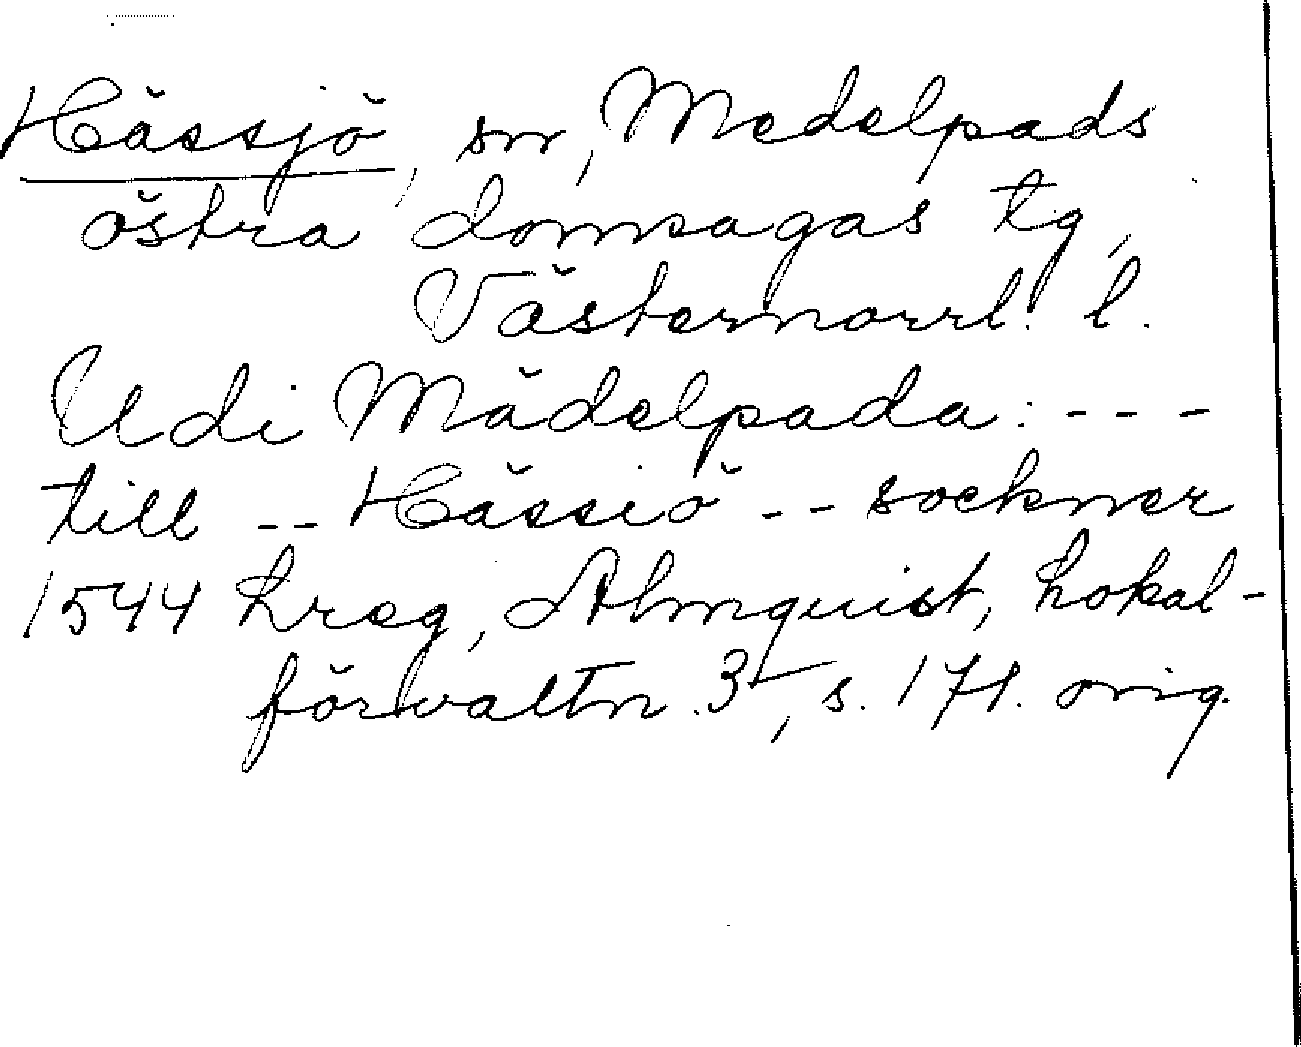 Hässjö, sn, Medelpads
östra domsagas tg,
Västernorrl. l.
Udi Mädelpada: ---
till -- Hässiö -- sockner
1544 hreg, Almquist, Lokal-
förvaltn. 3, s. 171. orig.